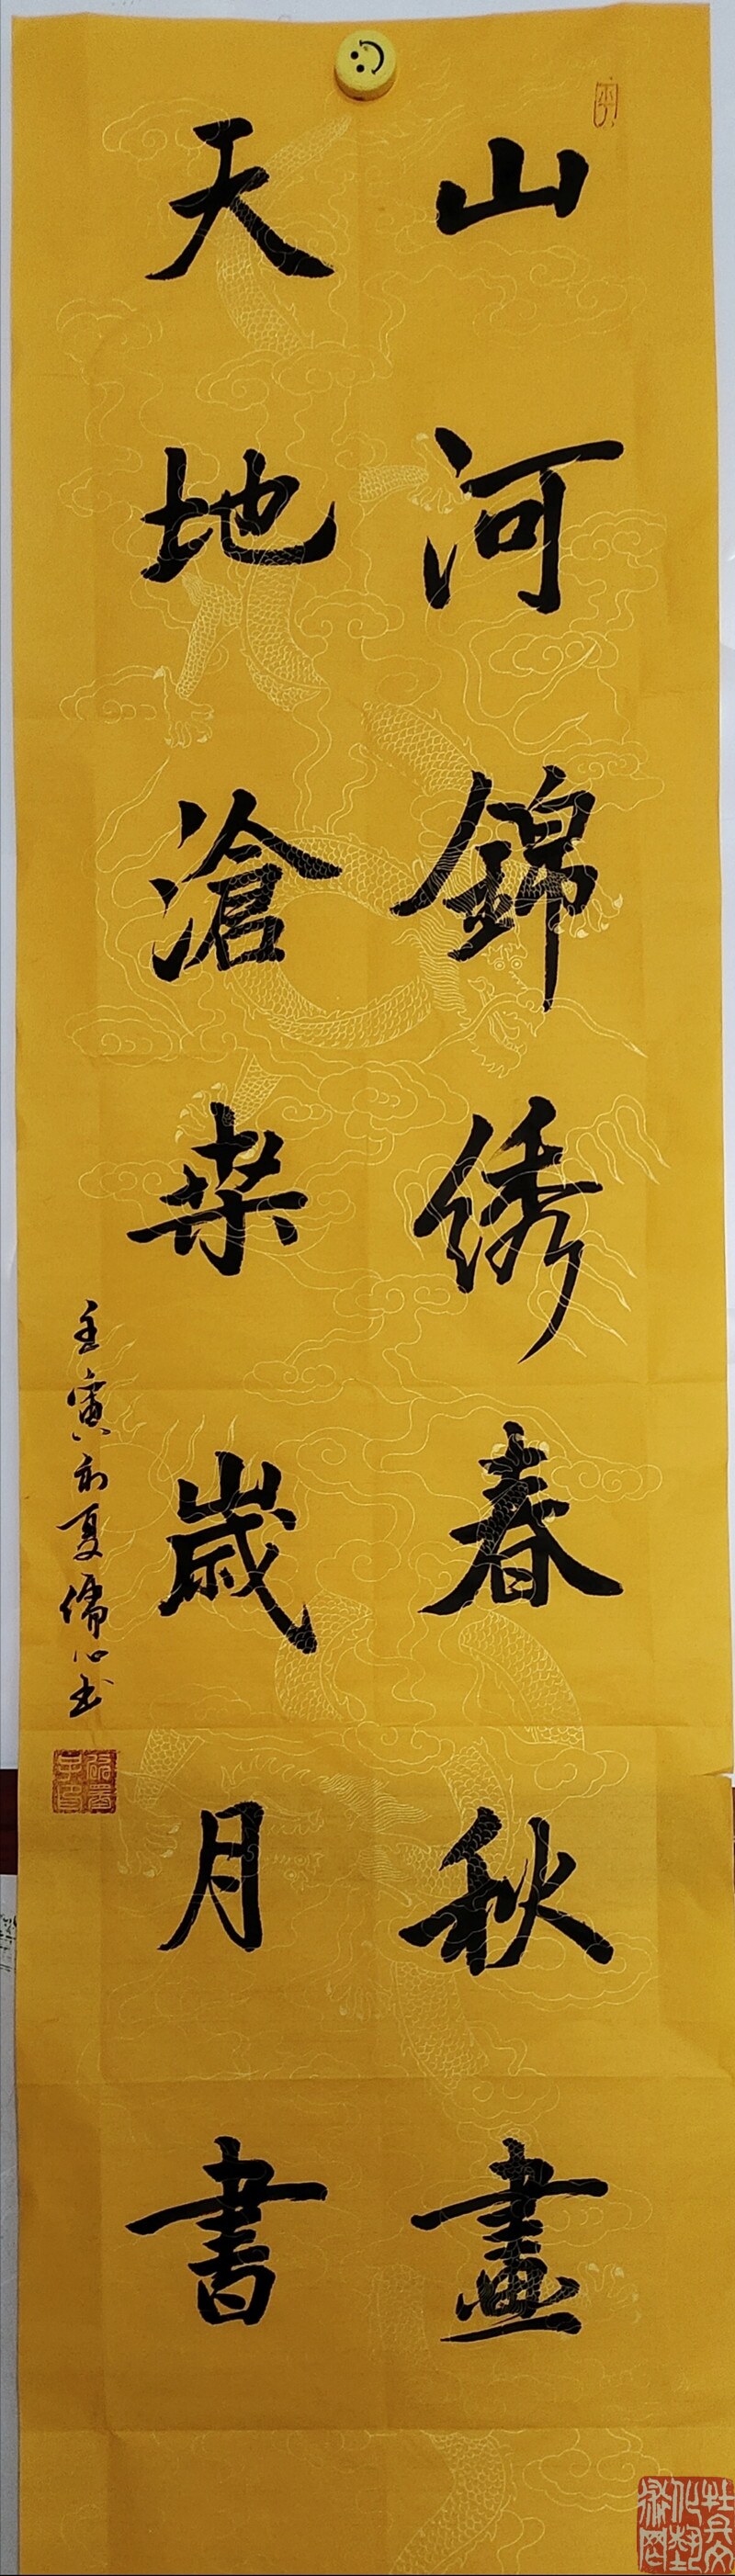 山河錦绣春秋畫
天地滄桑歲月書
壬寅初夏儒心书